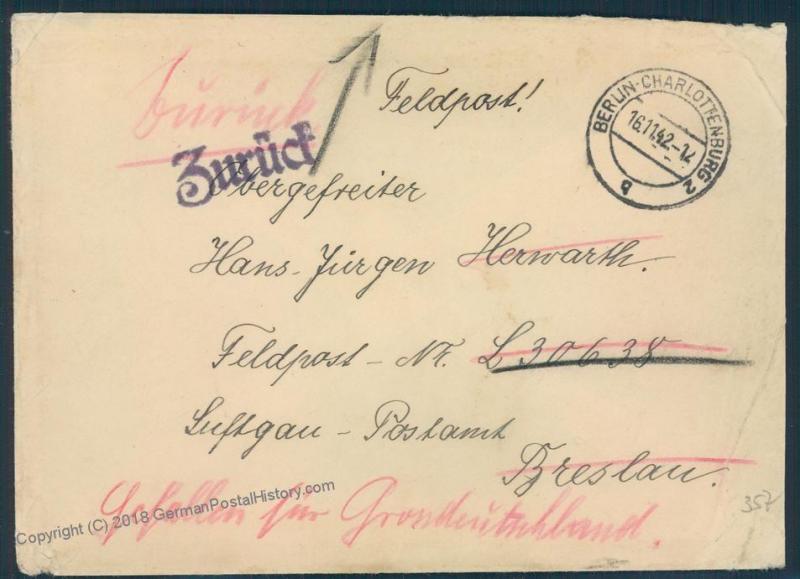 Zurück
Feldpost!
BERLIN-CHARLOTTENBURG 2
16.11.42-12
b
Zurück
Obergefreiter
Hans-Jürgen Herwarth.
Feldpost-Nr. L 30638
Luftgau-Postamt
Breslau.
Gefallen für Grossdeutschland.
357
Copyright (C) 2018 GermanPostalHistory.com